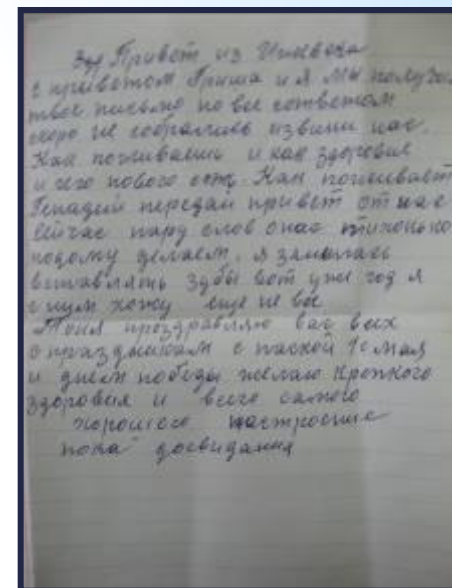 Зд Привет из Ижевска
с приветом Гриша и я мы получил
твое письмо но все сответом
скоро не собрались извини нас.
Как поживаешь и как здоровие
и чего нового есть. Как поживает
Генадий передай привет от нас
Сейчас пару слов онас потихоньку
подому делаем, я занялась
вставлять зубы вот уже год я
с ним хожу еще не все
Тоня проздравляю вас всех
с праздником с паской 1е мая
и днем победы желаю крепкого
здоровия и всего самого
хорошего настроение
пока досвидания